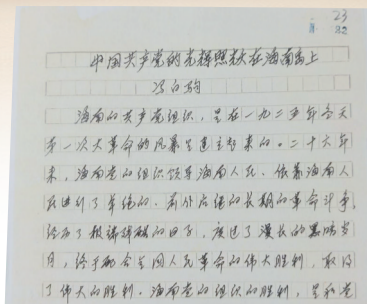 23
22
中国共产党的光辉照耀在海南岛上
冯白驹
海南的共产党组织，是在一九二五年冬天
第一次大革命的风暴里建立起来的。二十六年
来，海南党的组织领导海南人民，依靠海南人
民进行了单独的、有外后绝的长期的革命斗争，
经历了极端艰难的日子，度过了漫长的黑暗岁
月，终于配合全国人民革命的伟大胜利，取得
了伟大的胜利。海南党的组织的胜利，是和党